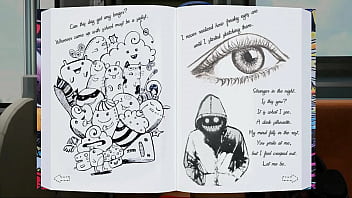 Can this day get any longer?
Whoever came up with school must be a sadist.
I never realized how freaky eyes are
until I started sketching them.
Stranger in the night.
Is this you?
It is what I see.
A dark silhouette.
My mind fills in the rest.
You smile at me,
but I feel creeped out.
Let me be.